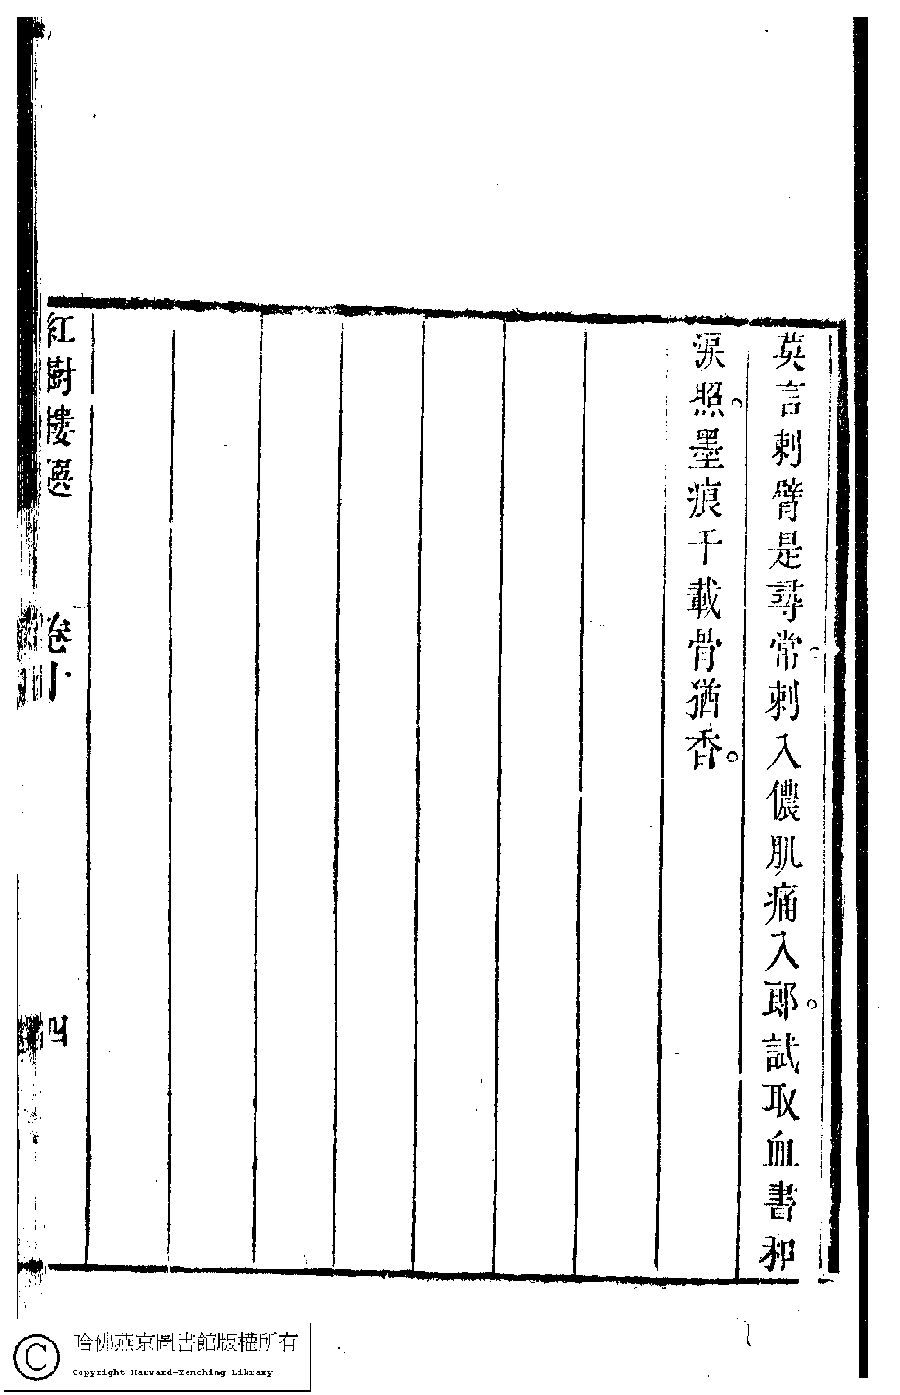 莫言刺臂是尋常刺入儂肌痛入郎試取血書和
淚照墨痕千載骨猶香
紅樹樓選
卷十
四
哈佛燕京圖書館版權所有
Copyright Harvard-Yenching Library